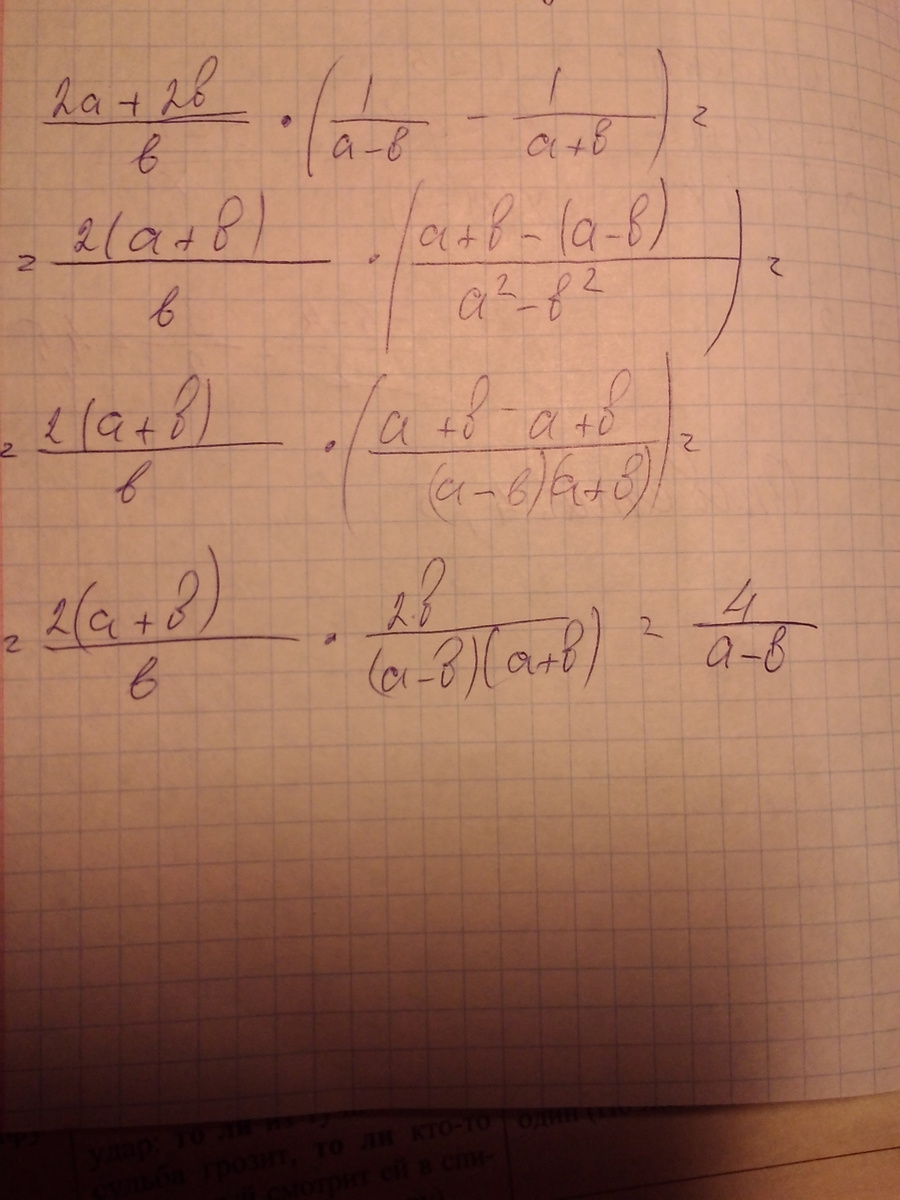 (2a + 2b)/b · (1/(a-b) - 1/(a+b)) =
= 2(a+b)/b · ((a+b-(a-b))/(a²-b²)) =
= 2(a+b)/b · ((a+b-a+b)/((a-b)(a+b))) =
= 2(a+b)/b · 2b/((a-b)(a+b)) = 4/(a-b)
удар; то ли
судьба грозит, то ли кто-то
смотрит ей в спи-